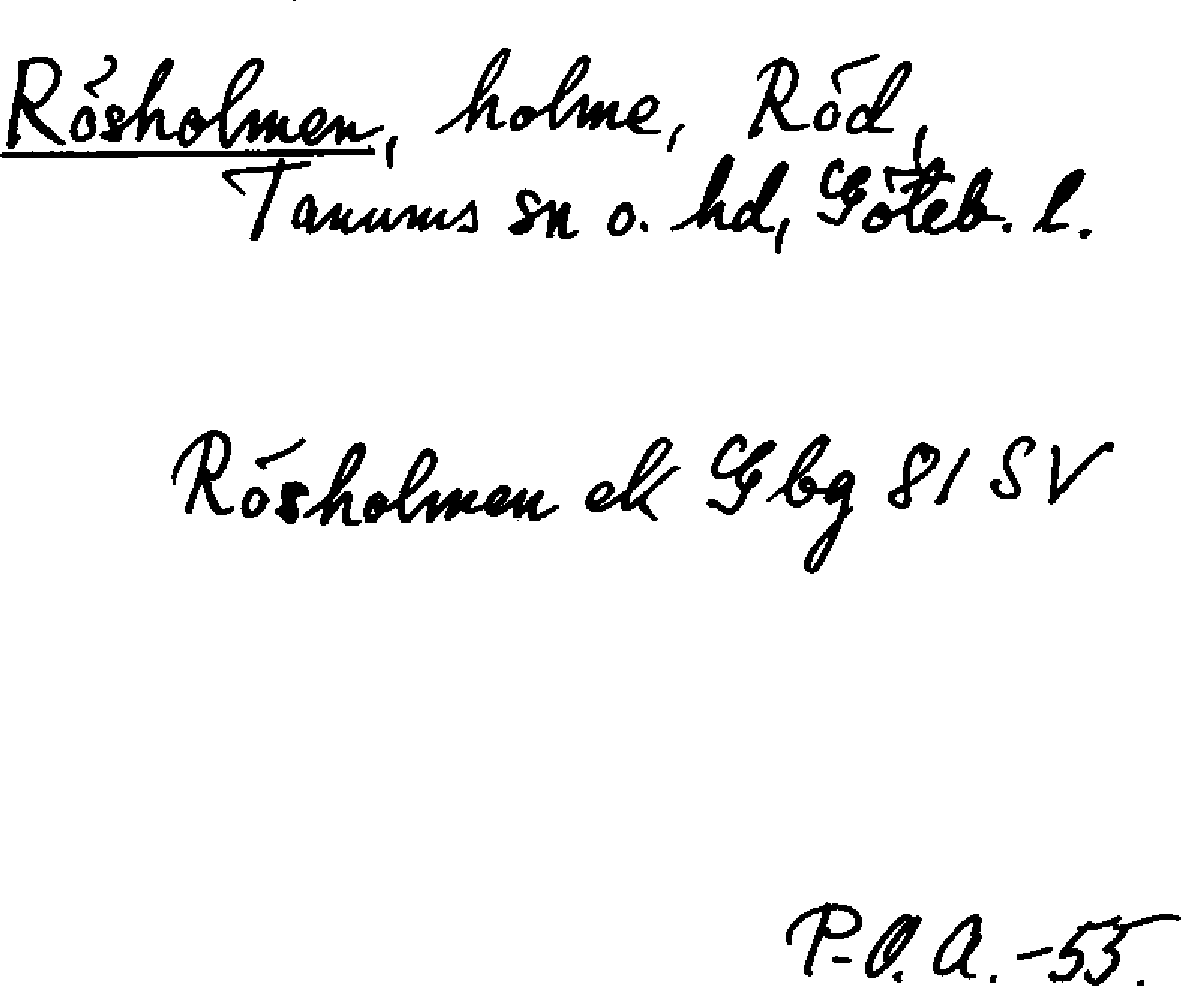 Rösholmen, holme, Röd,
Tanums sn o. hd, Göteb. l.
Rösholmen ek Gbg 81 SV
P-O. A. -55.